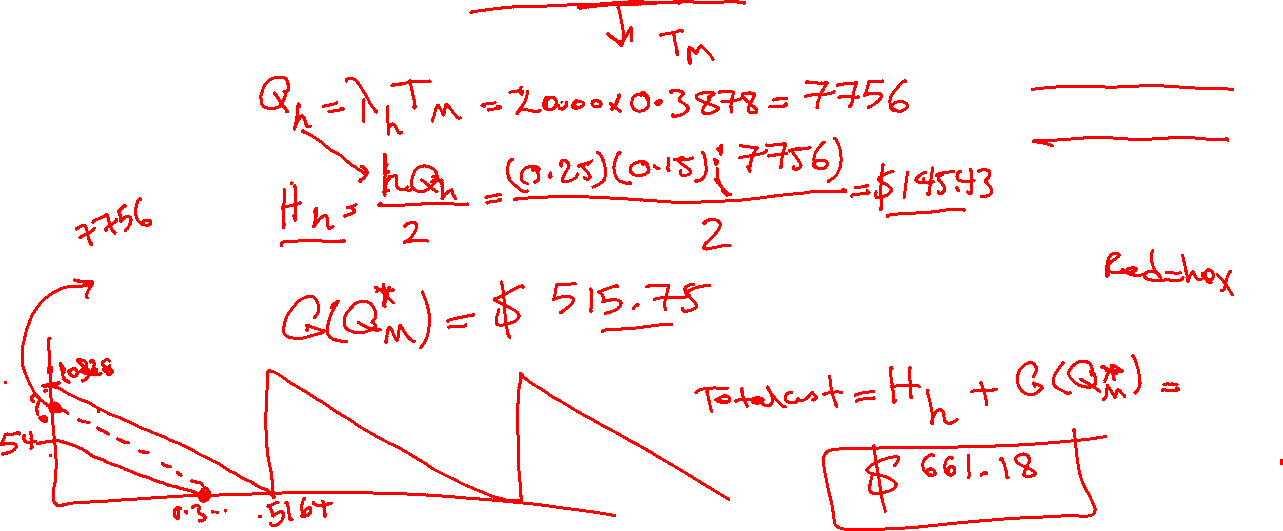 T_M
Q_h = λ_h T_M = 20,000 x 0.3878 = 7756
H_h = hQ_h / 2 = (0.25)(0.15)(7756) / 2 = $145.43
7756
Red=hex
G(Q*_M) = $ 515.75
10328
Total cost = H_h + G(Q*_M) =
?
54
$ 661.18
0.3... .5164